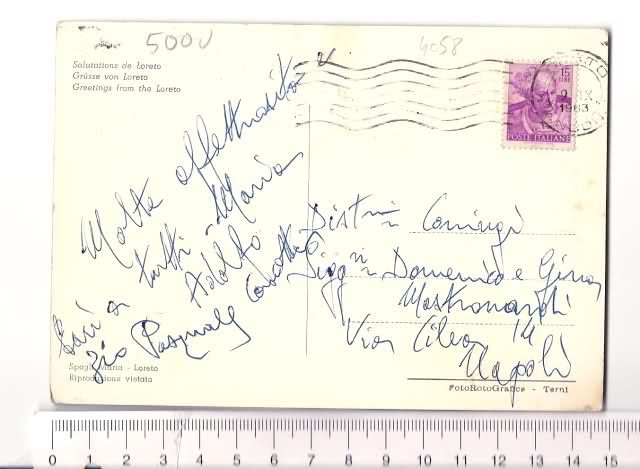 500V
4058
Salutations de Loreto
Grüsse von Loreto
Greetings from the Loreto
15
LIRE
POSTE ITALIANE
9 IX
1963
Molte affettuosità
a tutti - Maria
Adolfo
zio Pasquale
Dist.mi Coniugi
Sigg.ri Domenico e Gina
Mastronardi
Via Cilea 14
Napoli
Spagli Maria - Loreto
Riproduzione vietata
FotoRotoGrafica - Terni
0 1 2 3 4 5 6 7 8 9 10 11 12 13 14 15